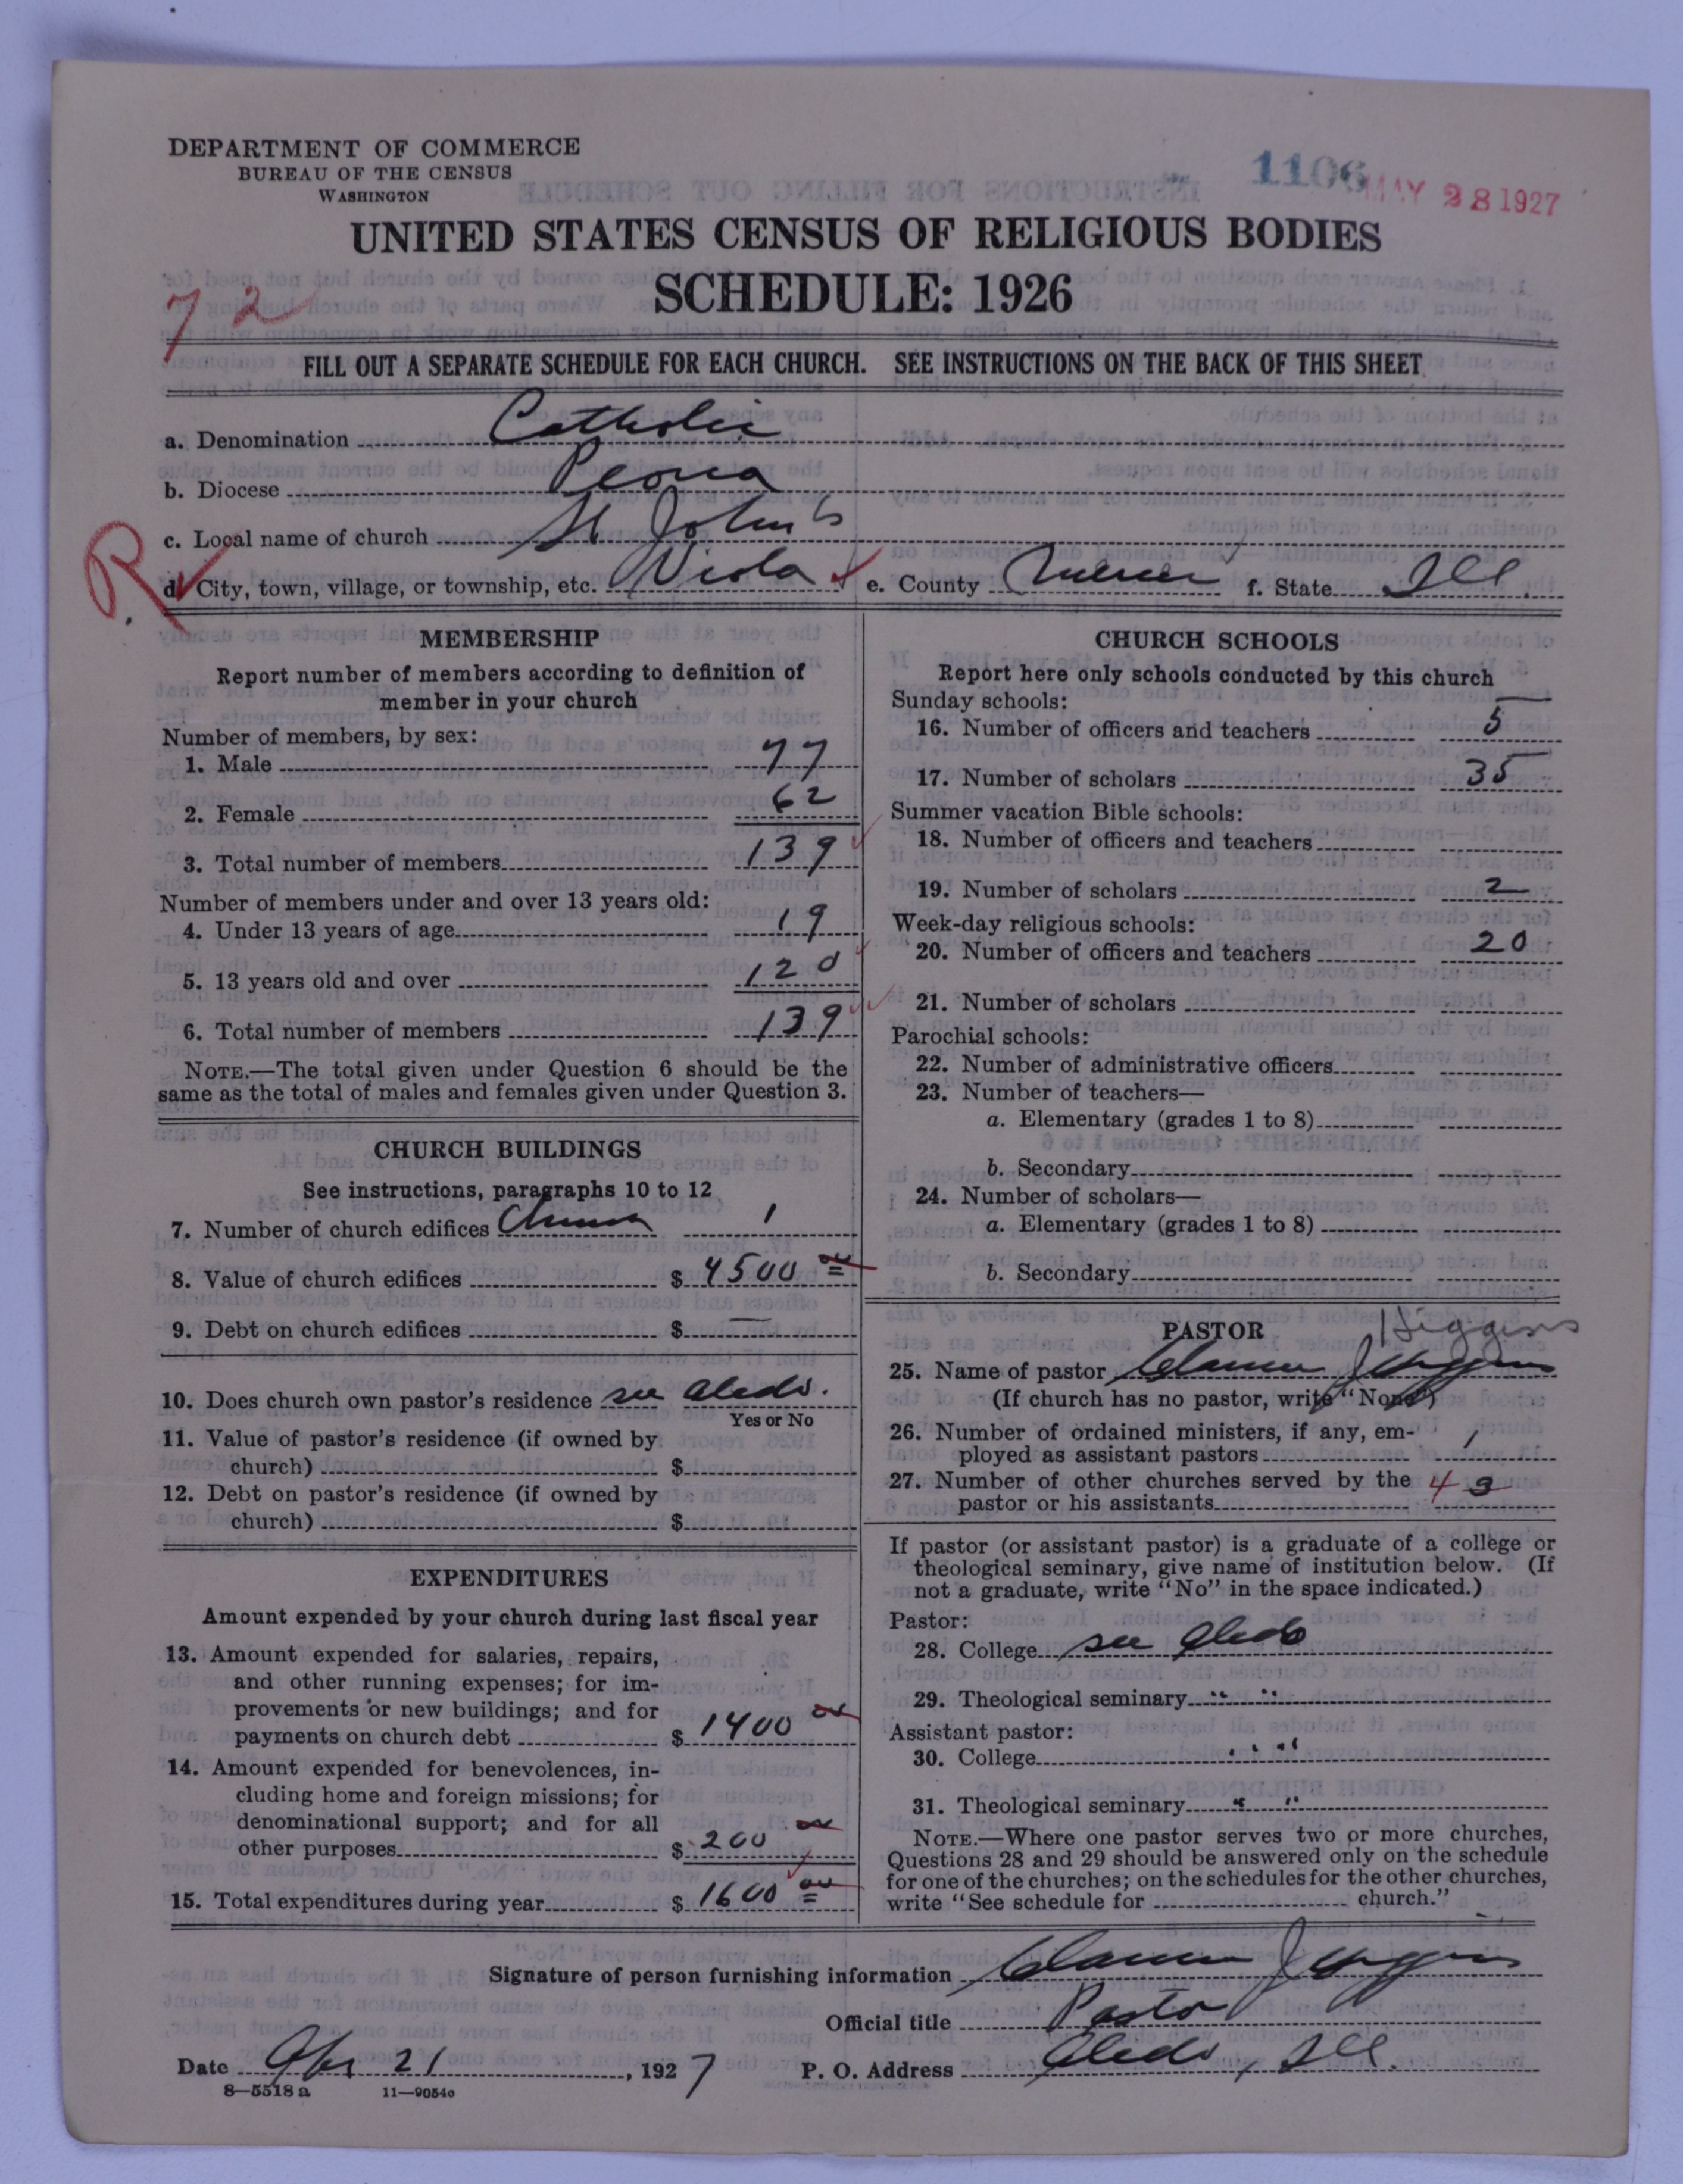 DEPARTMENT OF COMMERCE
BUREAU OF THE CENSUS
WASHINGTON
1106
MAY 28 1927
UNITED STATES CENSUS OF RELIGIOUS BODIES
SCHEDULE: 1926
72
FILL OUT A SEPARATE SCHEDULE FOR EACH CHURCH. SEE INSTRUCTIONS ON THE BACK OF THIS SHEET
a. Denomination Catholic
b. Diocese Peoria
c. Local name of church St John's
R
d. City, town, village, or township, etc. Viola e. County Mercer f. State Ill.
MEMBERSHIP
Report number of members according to definition of
member in your church
Number of members, by sex:
1. Male 77
2. Female 62
3. Total number of members 139
Number of members under and over 13 years old:
4. Under 13 years of age 19
5. 13 years old and over 120
6. Total number of members 139
NOTE.—The total given under Question 6 should be the
same as the total of males and females given under Question 3.
CHURCH BUILDINGS
See instructions, paragraphs 10 to 12
7. Number of church edifices Church 1
8. Value of church edifices $ 4500 00
9. Debt on church edifices $ —
10. Does church own pastor's residence see Aledo.
Yes or No
11. Value of pastor's residence (if owned by
church) $
12. Debt on pastor's residence (if owned by
church) $
EXPENDITURES
Amount expended by your church during last fiscal year
13. Amount expended for salaries, repairs,
and other running expenses; for im-
provements or new buildings; and for
payments on church debt $ 1400 00
14. Amount expended for benevolences, in-
cluding home and foreign missions; for
denominational support; and for all
other purposes $ 200 00
15. Total expenditures during year $ 1600 00
CHURCH SCHOOLS
Report here only schools conducted by this church
Sunday schools:
16. Number of officers and teachers 5
17. Number of scholars 35
Summer vacation Bible schools:
18. Number of officers and teachers
19. Number of scholars 2
Week-day religious schools:
20. Number of officers and teachers 20
21. Number of scholars
Parochial schools:
22. Number of administrative officers
23. Number of teachers—
a. Elementary (grades 1 to 8)
b. Secondary
24. Number of scholars—
a. Elementary (grades 1 to 8)
b. Secondary
PASTOR
Higgins
25. Name of pastor
(If church has no pastor, write "None")
26. Number of ordained ministers, if any, em-
ployed as assistant pastors 1
27. Number of other churches served by the
pastor or his assistants 4 3
If pastor (or assistant pastor) is a graduate of a college or
theological seminary, give name of institution below. (If
not a graduate, write "No" in the space indicated.)
Pastor:
28. College see Aledo
29. Theological seminary " "
Assistant pastor:
30. College " "
31. Theological seminary " "
NOTE.—Where one pastor serves two or more churches,
Questions 28 and 29 should be answered only on the schedule
for one of the churches; on the schedules for the other churches,
write "See schedule for church."
Signature of person furnishing information
Official title Pastor
Date Apr 21, 1927 P. O. Address Aledo, Ill.
8—5518 a 11—9054c